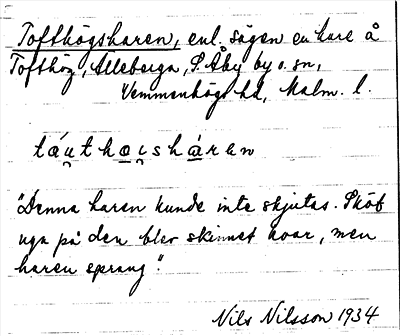 Tofthögsharen, enl. sägen en hare å
Tofthög, Alleberga, S. Åby by o. sn,
Vemmenhögs hd, Malm. l.
tá́u̯thoi̯sháren
"Denna haren kunde inte skjutas. Sköt
nga på den blev skinnet kvar, men
haren sprang".
Nils Nilsson 1934